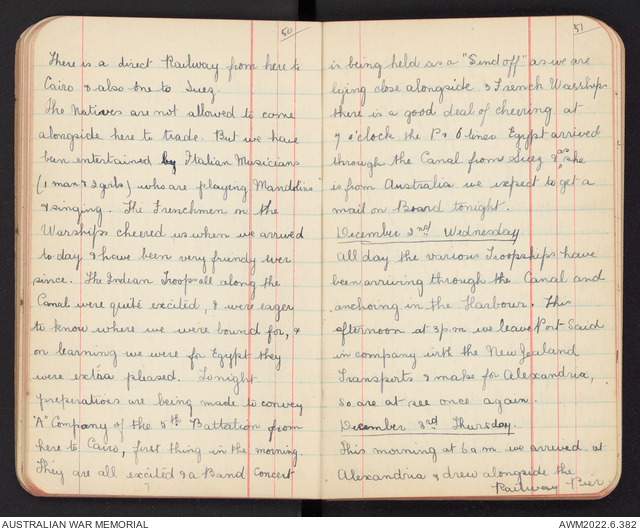 50
There is a direct Railway from here to
Cairo & also one to Suez.
The Natives are not allowed to come
alongside here to trade. But we have
been entertained by Italian Musicians
(1 man & 2 girls) who are playing Mandolins
& singing. The Frenchmen on the
Warships cheered us when we arrived
to day & have been very friendly ever
since. The Indian Troops all along the
Canal were quite excited, & were eager
to know where we were bound for, &
on learning we were for Egypt they
were extra pleased. Tonight
preparations are being made to convey
"A" Company of the 5th Battalion from
here to Cairo, first thing in the morning.
They are all excited & a Band Concert
51
is being held as a "Send off" as we are
lying close alongside 3 French Warships
there is a good deal of cheering at
7 o'clock the P & O liner Egypt arrived
through the Canal from Suez & as she
is from Australia we expect to get a
mail on Board tonight.
December 2nd Wednesday
All day the various Troopships have
been arriving through the Canal and
anchoring in the Harbour. This
afternoon at 3 p.m. we leave Port Said
in company with the New Zealand
Transports & make for Alexandria,
so are at see once again.
December 3rd Thursday.
This morning at 6 a m we arrived at
Alexandria & drew alongside the
Railway Pier.
AUSTRALIAN WAR MEMORIAL
AWM2022.6.382